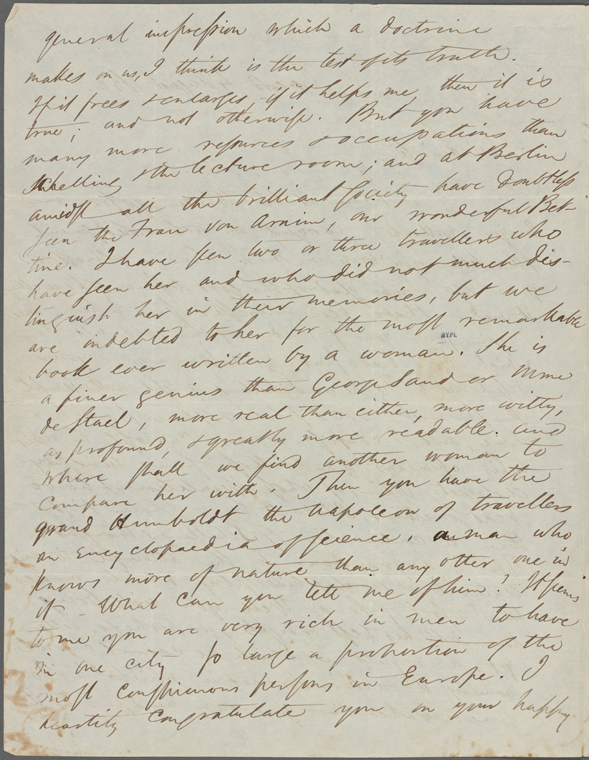 general impression which a doctrine
makes on us, I think is the test of its truth.
If it frees & enlarges, if it helps me, then it is
true; and not otherwise. But you have
many more resources & occupations than
Schelling & the lecture room; and at Berlin
amidst all the brilliant society have doubtless
seen the Frau von Arnim, our wonderful Bet-
tine. I have seen two or three travellers who
have seen her and who did not much dis-
tinguish her in their memories, but we
are indebted to her for the most remarkable
book ever written by a woman. She is
NYPL
a finer genius than George Sand or Mme
de Stael, more real than either, more witty,
as profound, & greatly more readable. And
where shall we find another woman to
compare her with. Then you have the
grand Humboldt the Napoleon of travellers
an Encyclopaedia of science, a man who
knows more of nature than any other one in
it - What can you tell me of him? It seems
to me you are very rich in men to have
in one city so large a proportion of the
most conspicuous persons in Europe. I
heartily congratulate you on your happy